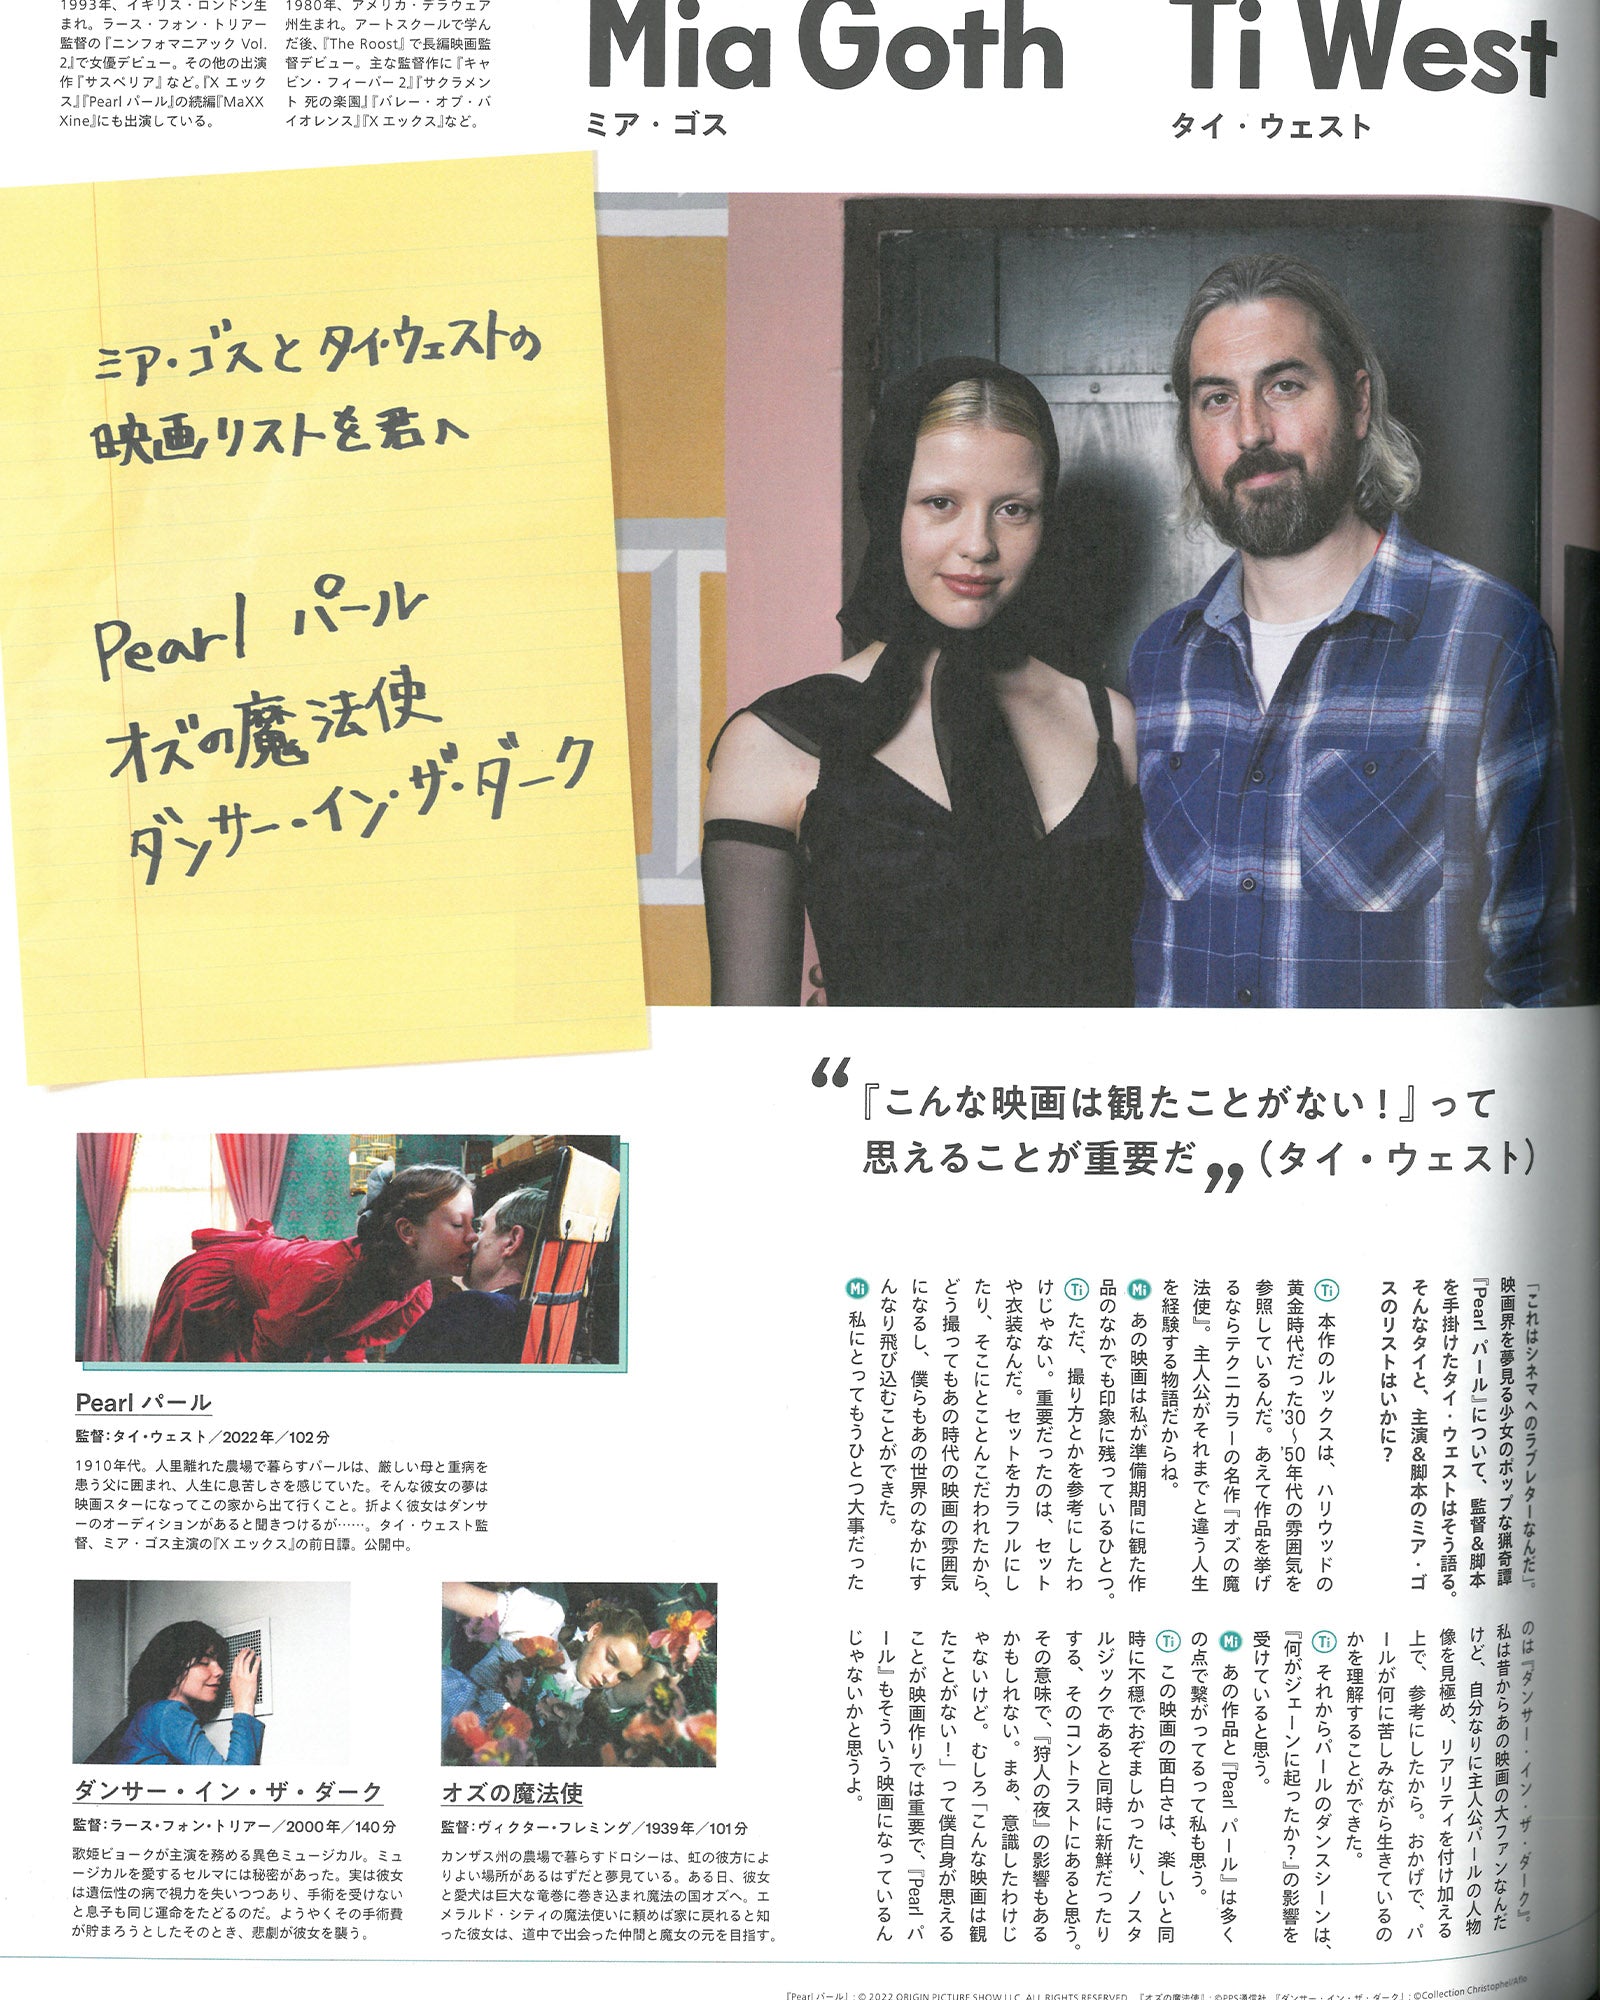 1993年、イギリス・ロンドン生
まれ。ラース・フォン・トリアー
監督の『ニンフォマニアック Vol.
2』で女優デビュー。その他の出演
作『サスペリア』など。『X エック
ス』『Pearl パール』の続編『MaXX
Xine』にも出演している。
1980年、アメリカ・デラウェア
州生まれ。アートスクールで学ん
だ後、『The Roost』で長編映画監
督デビュー。主な監督作に『キャ
ビン・フィーバー2』『サクラメン
ト 死の楽園』『バレー・オブ・バ
イオレンス』『X エックス』など。
Mia Goth
ミア・ゴス
Ti West
タイ・ウェスト
ミア・ゴスとタイ・ウェストの
映画リストを君へ
Pearl パール
オズの魔法使
ダンサー・イン・ザ・ダーク
“『こんな映画は観たことがない！』って
思えることが重要だ”（タイ・ウェスト）
「これはシネマへのラブレターなんだ」。
映画界を夢見る少女のポップな猟奇譚
『Pearl パール』について、監督&脚本
を手掛けたタイ・ウェストはそう語る。
そんなタイと、主演&脚本のミア・ゴ
スのリストはいかに？
Ti 本作のルックスは、ハリウッドの
黄金時代だった'30〜'50年代の雰囲気を
参照しているんだ。あえて作品を挙げ
るならテクニカラーの名作『オズの魔
法使』。主人公がそれまでと違う人生
を経験する物語だからね。
Mi あの映画は私が準備期間に観た作
品のなかでも印象に残っているひとつ。
Ti ただ、撮り方とかを参考にしたわ
けじゃない。重要だったのは、セット
や衣装なんだ。セットをカラフルにし
たり、そこにとことんこだわれたから、
どう撮ってもあの時代の映画の雰囲気
になるし、僕らもあの世界のなかにす
んなり飛び込むことができた。
Mi 私にとってもうひとつ大事だった
のは『ダンサー・イン・ザ・ダーク』。
私は昔からあの映画の大ファンなんだ
けど、自分なりに主人公パールの人物
像を見極め、リアリティを付け加える
上で、参考にしたから。おかげで、パ
ールが何に苦しみながら生きているの
かを理解することができた。
Ti それからパールのダンスシーンは、
『何がジェーンに起ったか？』の影響を
受けていると思う。
Mi あの作品と『Pearl パール』は多く
の点で繋がってるって私も思う。
Ti この映画の面白さは、楽しいと同
時に不穏でおぞましかったり、ノスタ
ルジックであると同時に新鮮だったり
する、そのコントラストにあると思う。
その意味で、『狩人の夜』の影響もある
かもしれない。まぁ、意識したわけじ
ゃないけど。むしろ「こんな映画は観
たことがない！」って僕自身が思える
ことが映画作りでは重要で、『Pearl パ
ール』もそういう映画になっているん
じゃないかと思うよ。
Pearl パール
監督：タイ・ウェスト／2022年／102分
1910年代。人里離れた農場で暮らすパールは、厳しい母と重病を
患う父に囲まれ、人生に息苦しさを感じていた。そんな彼女の夢は
映画スターになってこの家から出て行くこと。折よく彼女はダンサ
ーのオーディションがあると聞きつけるが……。タイ・ウェスト監
督、ミア・ゴス主演の『X エックス』の前日譚。公開中。
ダンサー・イン・ザ・ダーク
監督：ラース・フォン・トリアー／2000年／140分
歌姫ビョークが主演を務める異色ミュージカル。ミュ
ージカルを愛するセルマには秘密があった。実は彼女
は遺伝性の病で視力を失いつつあり、手術を受けない
と息子も同じ運命をたどるのだ。ようやくその手術費
が貯まろうとしたそのとき、悲劇が彼女を襲う。
オズの魔法使
監督：ヴィクター・フレミング／1939年／101分
カンザス州の農場で暮らすドロシーは、虹の彼方によ
りよい場所があるはずだと夢見ている。ある日、彼女
と愛犬は巨大な竜巻に巻き込まれ魔法の国オズへ。エ
メラルド・シティの魔法使いに頼めば家に戻れると知
った彼女は、道中で出会った仲間と魔女の元を目指す。
『Pearl パール』：© 2022 ORIGIN PICTURE SHOW LLC. ALL RIGHTS RESERVED. 『オズの魔法使』：©PPS通信社 『ダンサー・イン・ザ・ダーク』：©Collection Christophel/Aflo